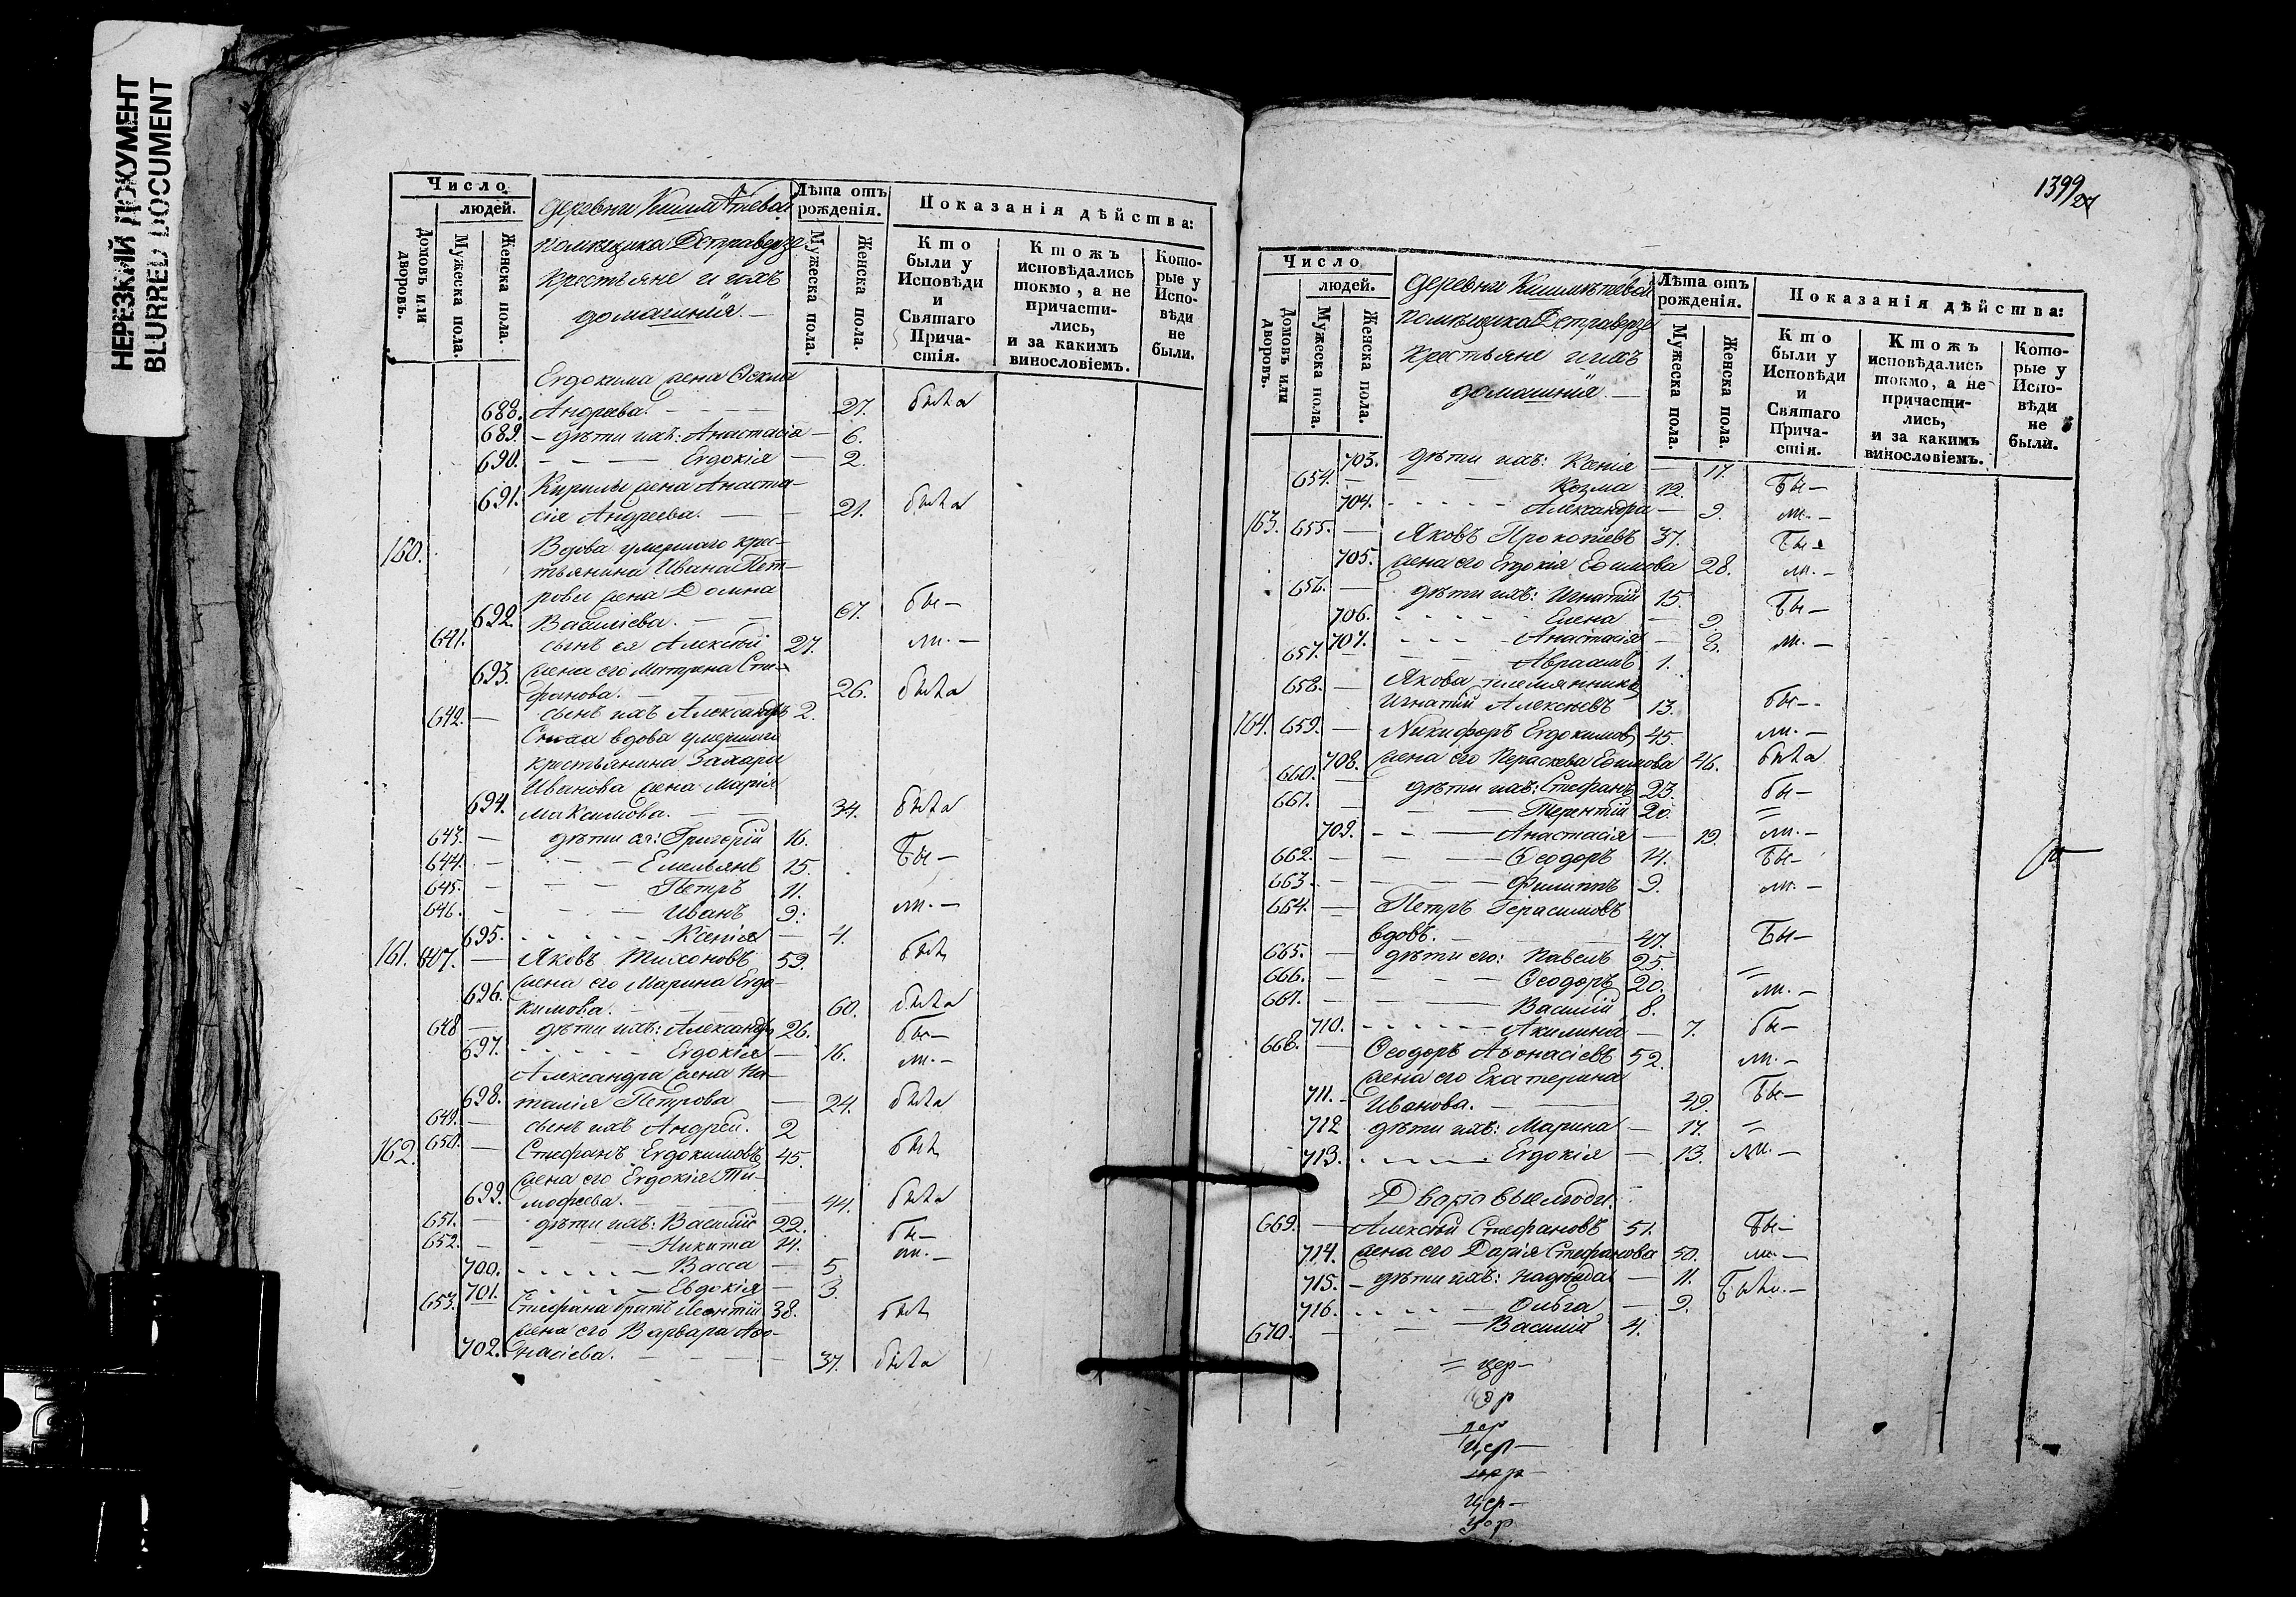 НЕРЕЗКИЙ ДОКУМЕНТ
BLURRED DOCUMENT
Число
людей.
Домовъ или дворовъ.
Мужеска пола.
Женска пола.
деревни
помѣщика
крестьяне и ихъ
домашнія. —
Лѣта отъ рожденія.
Мужеска пола.
Женска пола.
Показанія дѣйства:
Кто были у Исповѣди и Святаго Причастія.
Ктожъ исповѣдались токмо, а не причастились, и за какимъ винословіемъ.
Которые у Исповѣди не были.
Евдокима жена
688. Андреева. — 27. была
689. — дѣти ихъ: Анастасія — 6.
690. — Евдокія — 2.
691. Кирилы жена Анаста-
сія Андреева. — 21. была
160. Вдова умершаго крес-
тьянина Ивана Пет-
рова жена Домна
692. Василіева. — 67. бы —
641. сынъ ея Алексѣй 27. ли. —
693. жена его Матрена Сте-
фанова. — 26. была
642. — сынъ ихъ Александръ 2.
Сноха вдова умершаго
крестьянина Захара
Иванова жена Марія
694. Максимова. — 34. была
643. — дѣти ея: Григорій 16.
644. — Емельянъ 15. Бы —
645. — Петръ 11.
646. — Иванъ 9. ли. —
695. — Ксенія — 4.
161. 647. — Яковъ Тихоновъ 59. былъ
696. жена его Марина Евдо-
кимова. — 60. была
648 — дѣти ихъ: Александръ 26. бы —
697. — Евдокія — 16. ли. —
Александра жена На-
698. талія Петрова — 24. была
649. — сынъ ихъ Андрей. 2
162. 650. — Стефанъ Евдокимовъ 45. былъ
699. жена его Евдокія Ти-
мофеева. — 44. была
651. — дѣти ихъ: Василій 22. бы —
652. — Никита 14. ли. —
700. — Васса — 5
701. — Евдокія — 3.
653. Стефана братъ Леонтій 38. былъ
жена его Варвара Аѳо-
702. насіева. — 37. была
1399
27
Число
людей.
Домовъ или дворовъ.
Мужеска пола.
Женска пола.
деревни
помѣщика
крестьяне и ихъ
домашнія. —
Лѣта отъ рожденія.
Мужеска пола.
Женска пола.
Показанія дѣйства:
Кто были у Исповѣди и Святаго Причастія.
Ктожъ исповѣдались токмо, а не причастились, и за какимъ винословіемъ.
Которые у Исповѣди не были.
703. дѣти ихъ: Ксенія — 17.
654. — Козма 12. Бы —
704. — Александра — 9. ли. —
163. 655. — Яковъ Прокопіевъ 37. Бы —
705. жена его Евдокія Ефимова 28. ли. —
656. — дѣти ихъ: Игнатій 15. Бы —
706. — Елена — 9.
707. — Анастасія — 8. ли. —
657. — Авраамъ 1.
658. — Якова племянникъ
Игнатій Алексѣевъ 13. бы —
164. 659. — Никифоръ Евдокимовъ 45. ли. —
708. жена его Параскева Ефимова 46. была
660. — дѣти ихъ: Стефанъ 23. бы —
661. — Терентій 20. =
709. — Анастасія — 19. ли. —
662. — Ѳеодоръ 14. Бы —
663. — Филиппъ 9. ли. —
664. — Петръ Герасимовъ
вдовъ. — 47. Бы —
665. — дѣти его: Павелъ 25. =
666. — Ѳеодоръ 20. ли. —
667. — Василій 8.
710. — Акилина — 7. бы —
668. — Ѳеодоръ Аѳонасіевъ 52. ли. —
жена его Екатерина
711. Иванова. — 49. Бы —
712 дѣти ихъ: Марина — 17. =
713. — Евдокія — 13. ли. —
Дворовые люди.
669. — Алексѣй Стефановъ 51. Бы —
714. жена его Дарія Стефанова 50. ли. —
715. — дѣти ихъ: Надежда — 11. Были. —
716. — Ольга — 9.
670. — Василій 4.
= цер —
цер
цер
цер —
цер —
цер —
цер